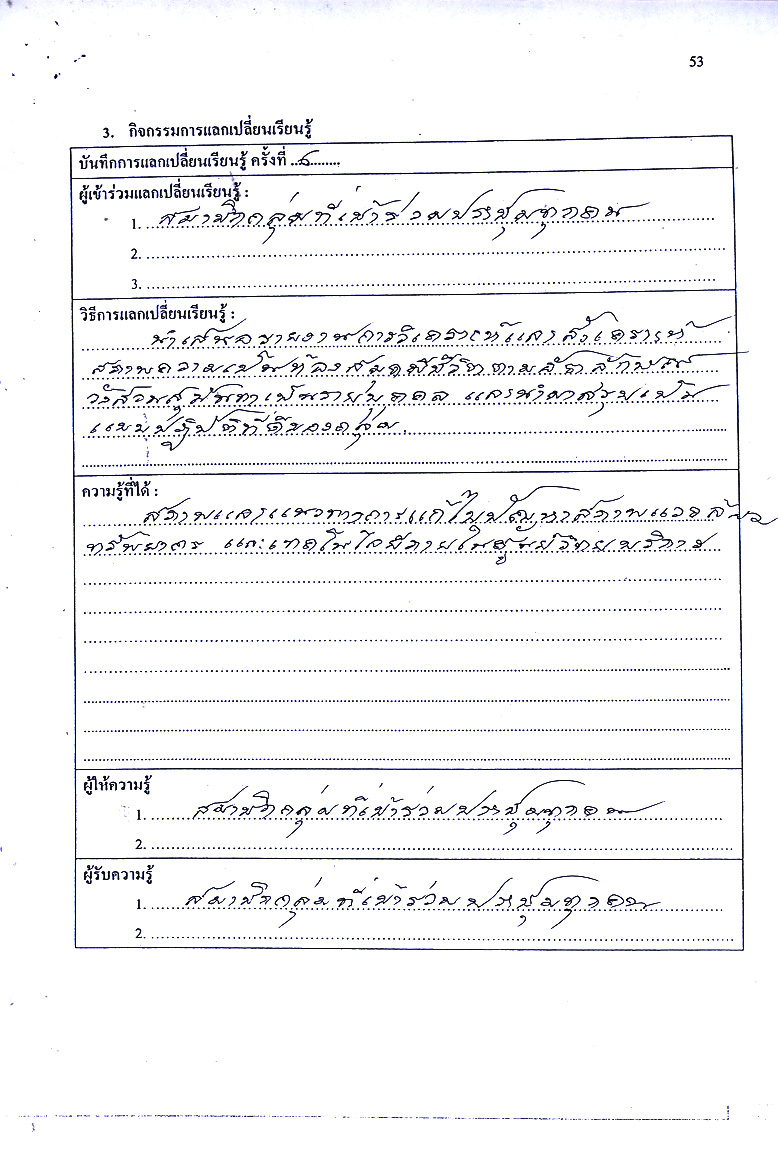 53
3. กิจกรรมการแลกเปลี่ยนเรียนรู้
บันทึกการแลกเปลี่ยนเรียนรู้ ครั้งที่ ..6........
ผู้เข้าร่วมแลกเปลี่ยนเรียนรู้ :
1. สมาชิกกลุ่มที่เข้าร่วมประชุมทุกคน
2.
3.
วิธีการแลกเปลี่ยนเรียนรู้ :
นำเสนอรายงานการวิเคราะห์และสังเคราะห์
สภาพความเป็นห้องสมุดมีชีวิตตามอัตลักษณ์
วังสวนสุนันทาเป็นรายบุคคล และนำมาสรุปเป็น
แบบปฏิบัติที่ดีของกลุ่ม
ความรู้ที่ได้ :
สภาพและแนวทางการแก้ไขปัญหาสภาพแวดล้อม
ทรัพยากร และเทคโนโลยีภายในศูนย์วิทยบริการ
ผู้ให้ความรู้
1. สมาชิกกลุ่มที่เข้าร่วมประชุมทุกคน
2.
ผู้รับความรู้
1. สมาชิกกลุ่มที่เข้าร่วมประชุมทุกคน
2.